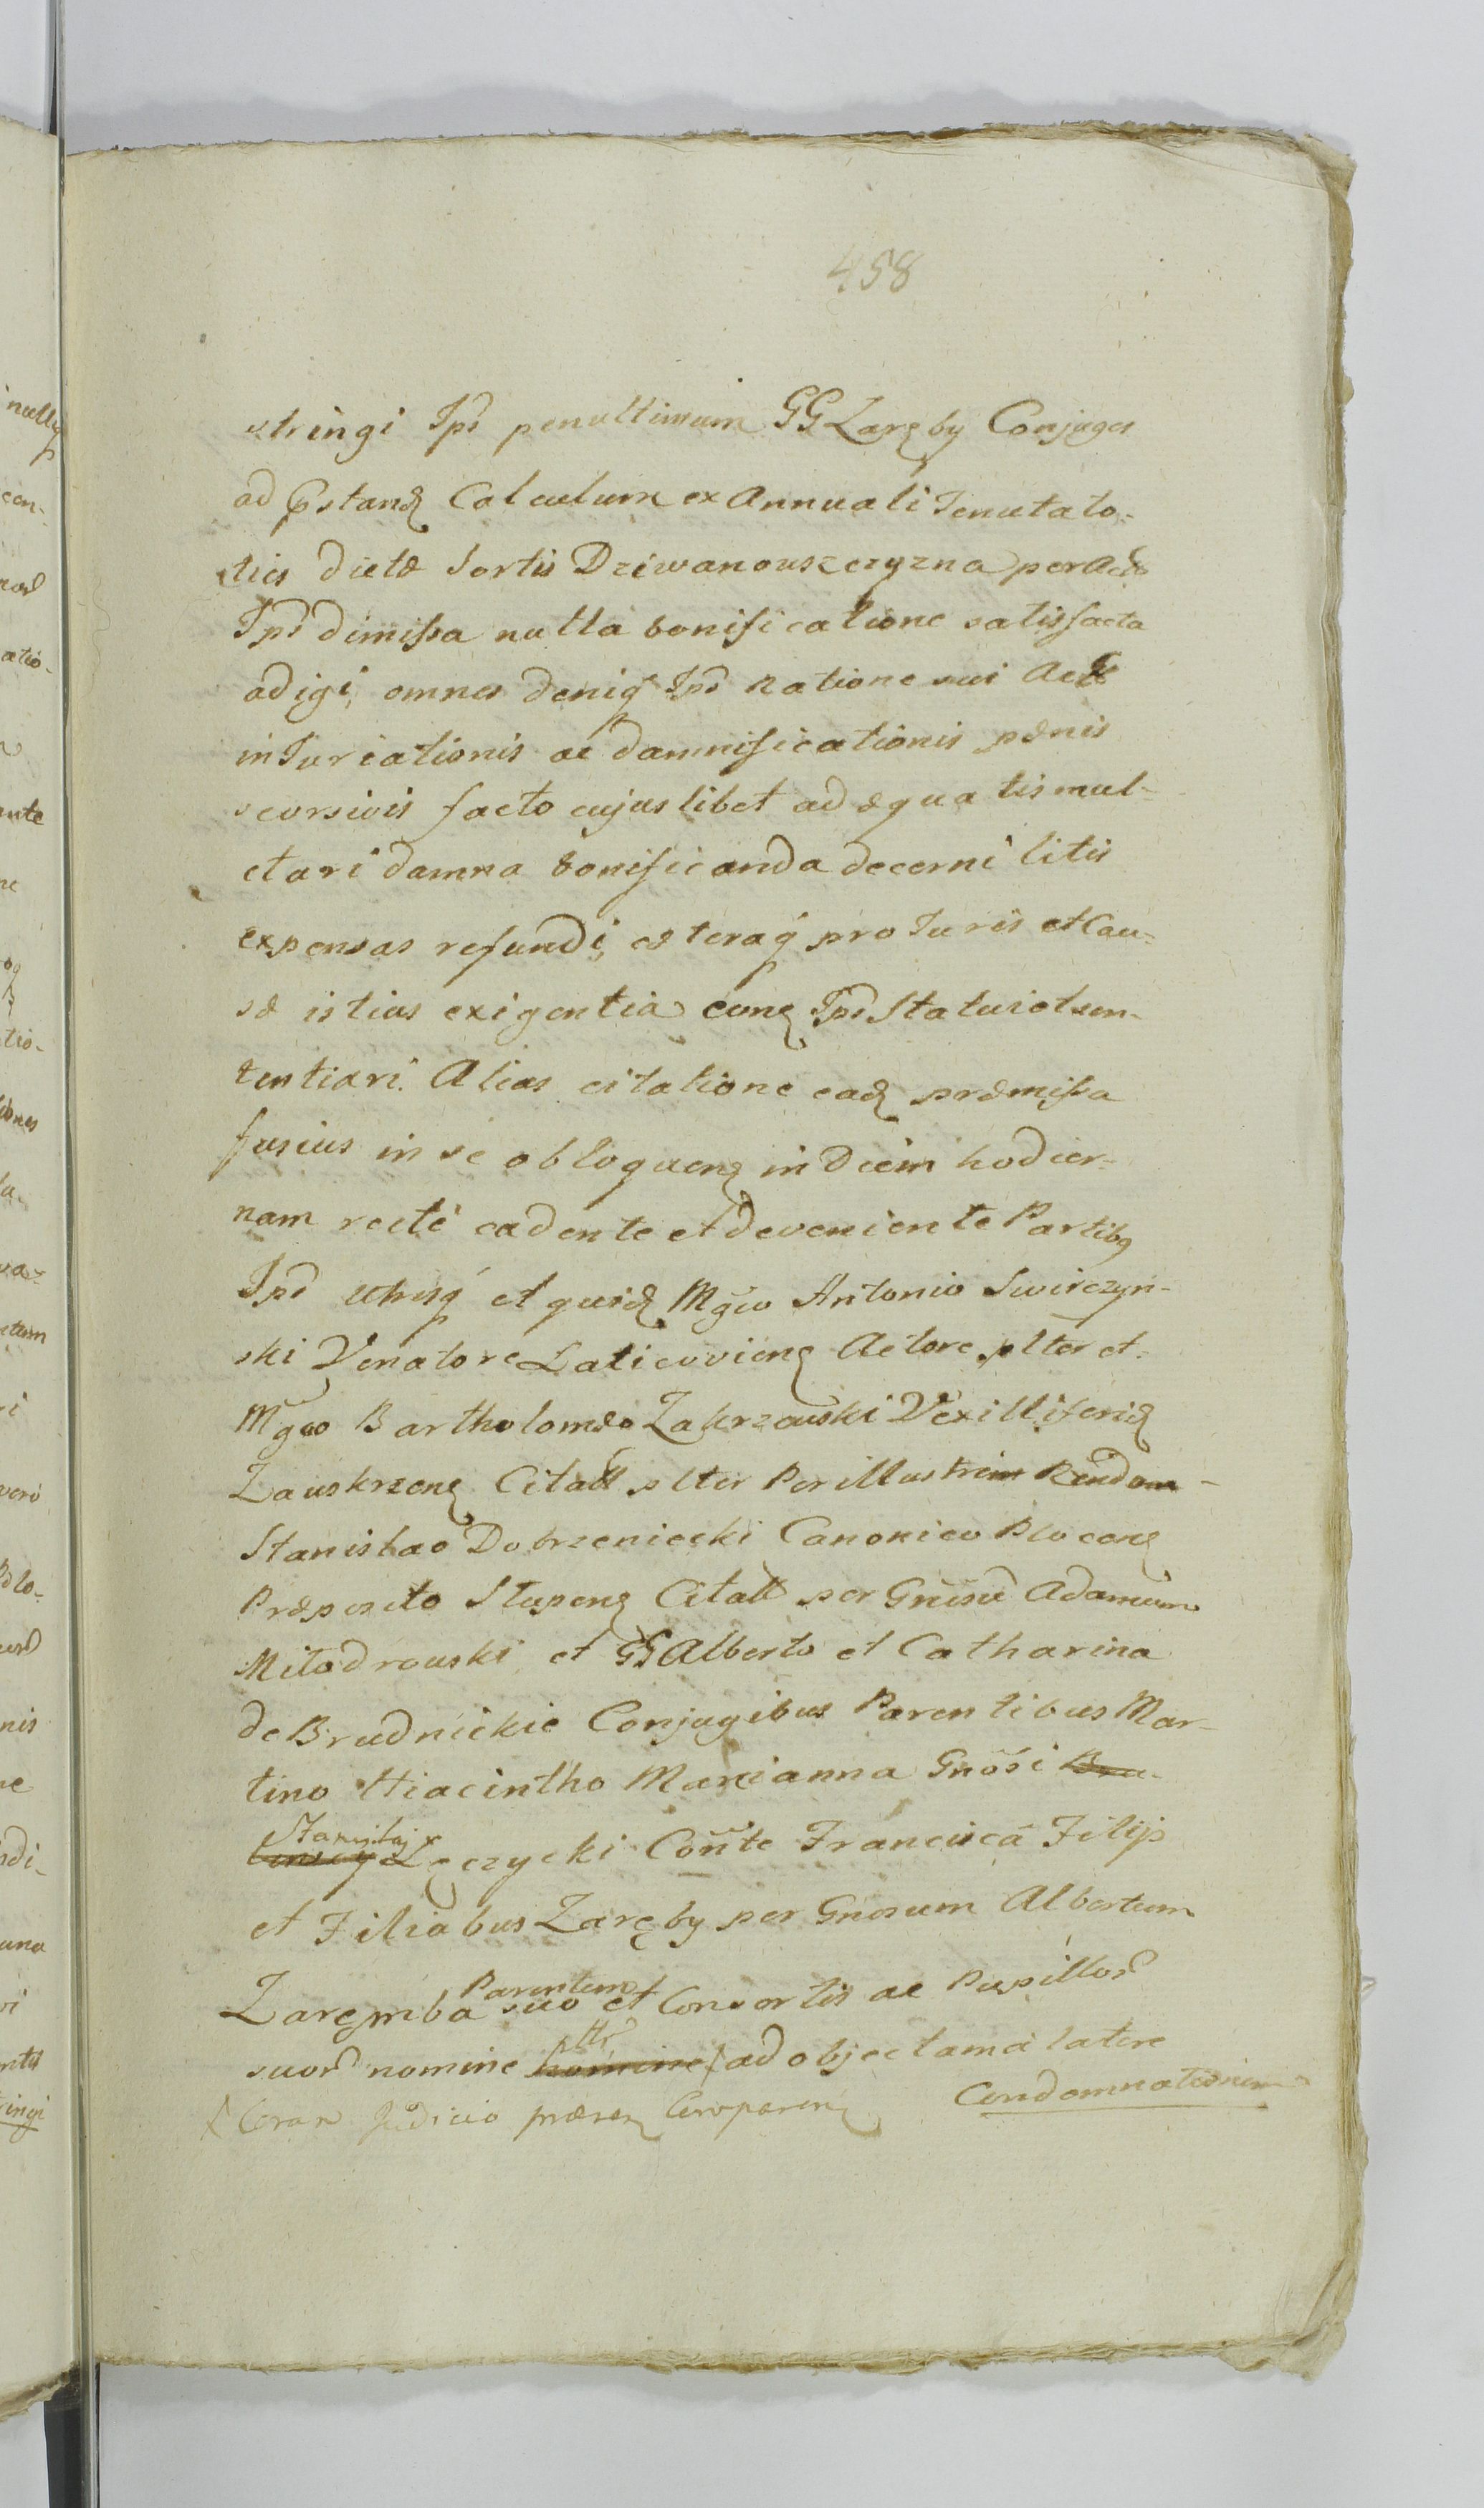 458
stringi Ips penultimum GG Zaręby Conjuges
ad pstand Calculum ex Annuali Tenuta to-
ties dictæ Sortis Dziwanouszczyzna per Act
Ips dimissa nulla bonificatione satisfacta
adigi, omnes deniq Ips Ratione sui Act
inJuriationis ac damnificationis pænis
seorsivis facto cujuslibet adæquatis mul-
ctari damna bonificanda decerni litis
expensas refundi, cæteraq pro Juris et Cau-
sæ istius exigentia conę Ips Statui et sen-
tentiari. Alias citatione eadę præmissa
fusius in se obloquenę in Diem hodier-
nam recte cadente et deveniente Partibq
Ips utrisq et quidę Mgco Antonio Swirczyn-
ski Venatore Laticovienę Actore plter et
Mgco Bartholomæo Zakrzewski Vexilliferidę
Zauskrzenę Citatt plter Perillustrem Rendom
Stanislao Dobrzeniecki Canonico Plocenę
Præposito Slupenę Citatt per Gnesu Adamum
Milodrowski, et GG Alberto et Catharina
de Brudnickie Conjugibus Parentibus Mar-
tino Hiacintho Marianna Gnosi Bru-
Stanislaj x
Łęczycki Conte Francisca Filijs
et Filiabus Zaręby per Gnosum Albertum
Parentem
Zarembą suo et Consortis ac Pupillor
plter
suor nomine nomine ad objectam a latere
Coram Judicio præsenę Comparenę Condemnationem